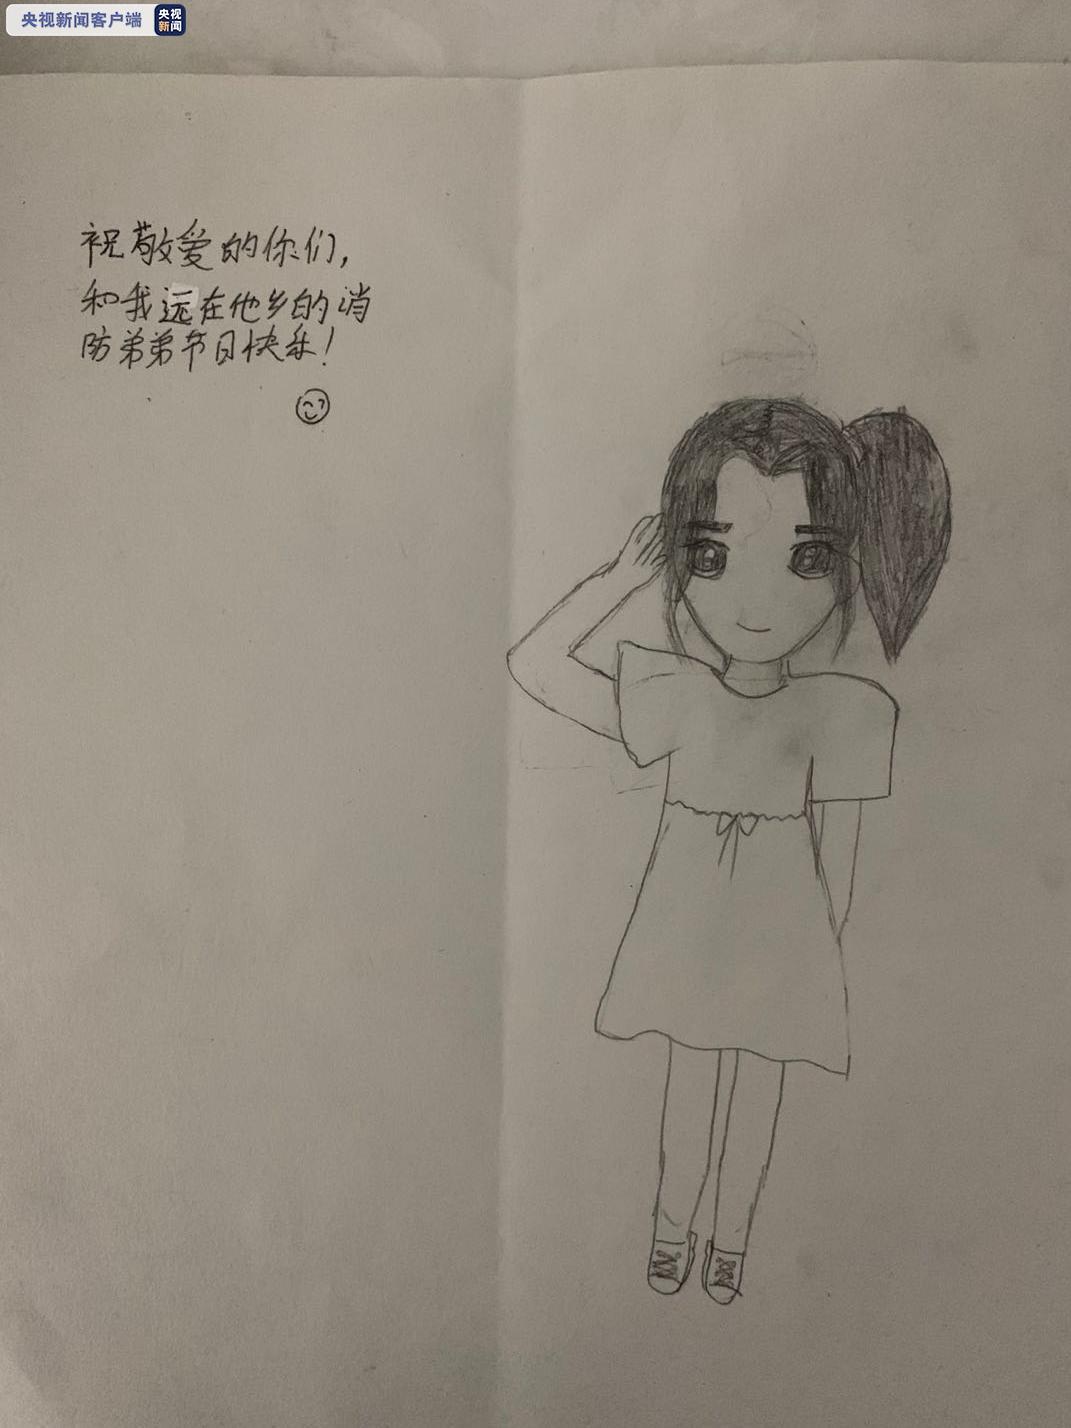 央视新闻客户端 央视新闻
祝敬爱的你们，
和我远在他乡的消
防弟弟节日快乐！